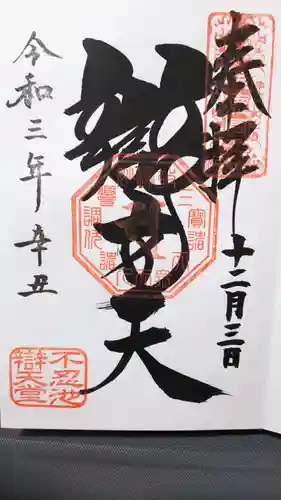 奉拝
十二月三日
辯才天
令和三年辛丑
不忍池
辯天堂